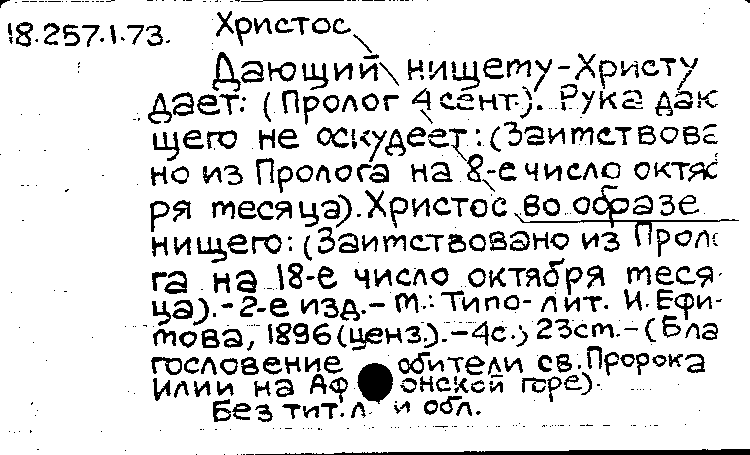 18.257.1.73. Христос
Дающий нищему-Христу
дает: (Пролог 4 сент.). Рука даю
щего не оскудеет: (Заимствова
но из Пролога на 8-е число октяб
ря месяца). Христос во образе
нищего: (Заимствовано из Проло
га на 18-е число октября меся
ца).-2-е изд.-М.: Типо-лит. И. Ефи
мова, 1896 (ценз.).-4с.; 23см.-(Бла
гословение обители св. Пророка
Илии на Афонской горе).
Без тит. л. и обл.